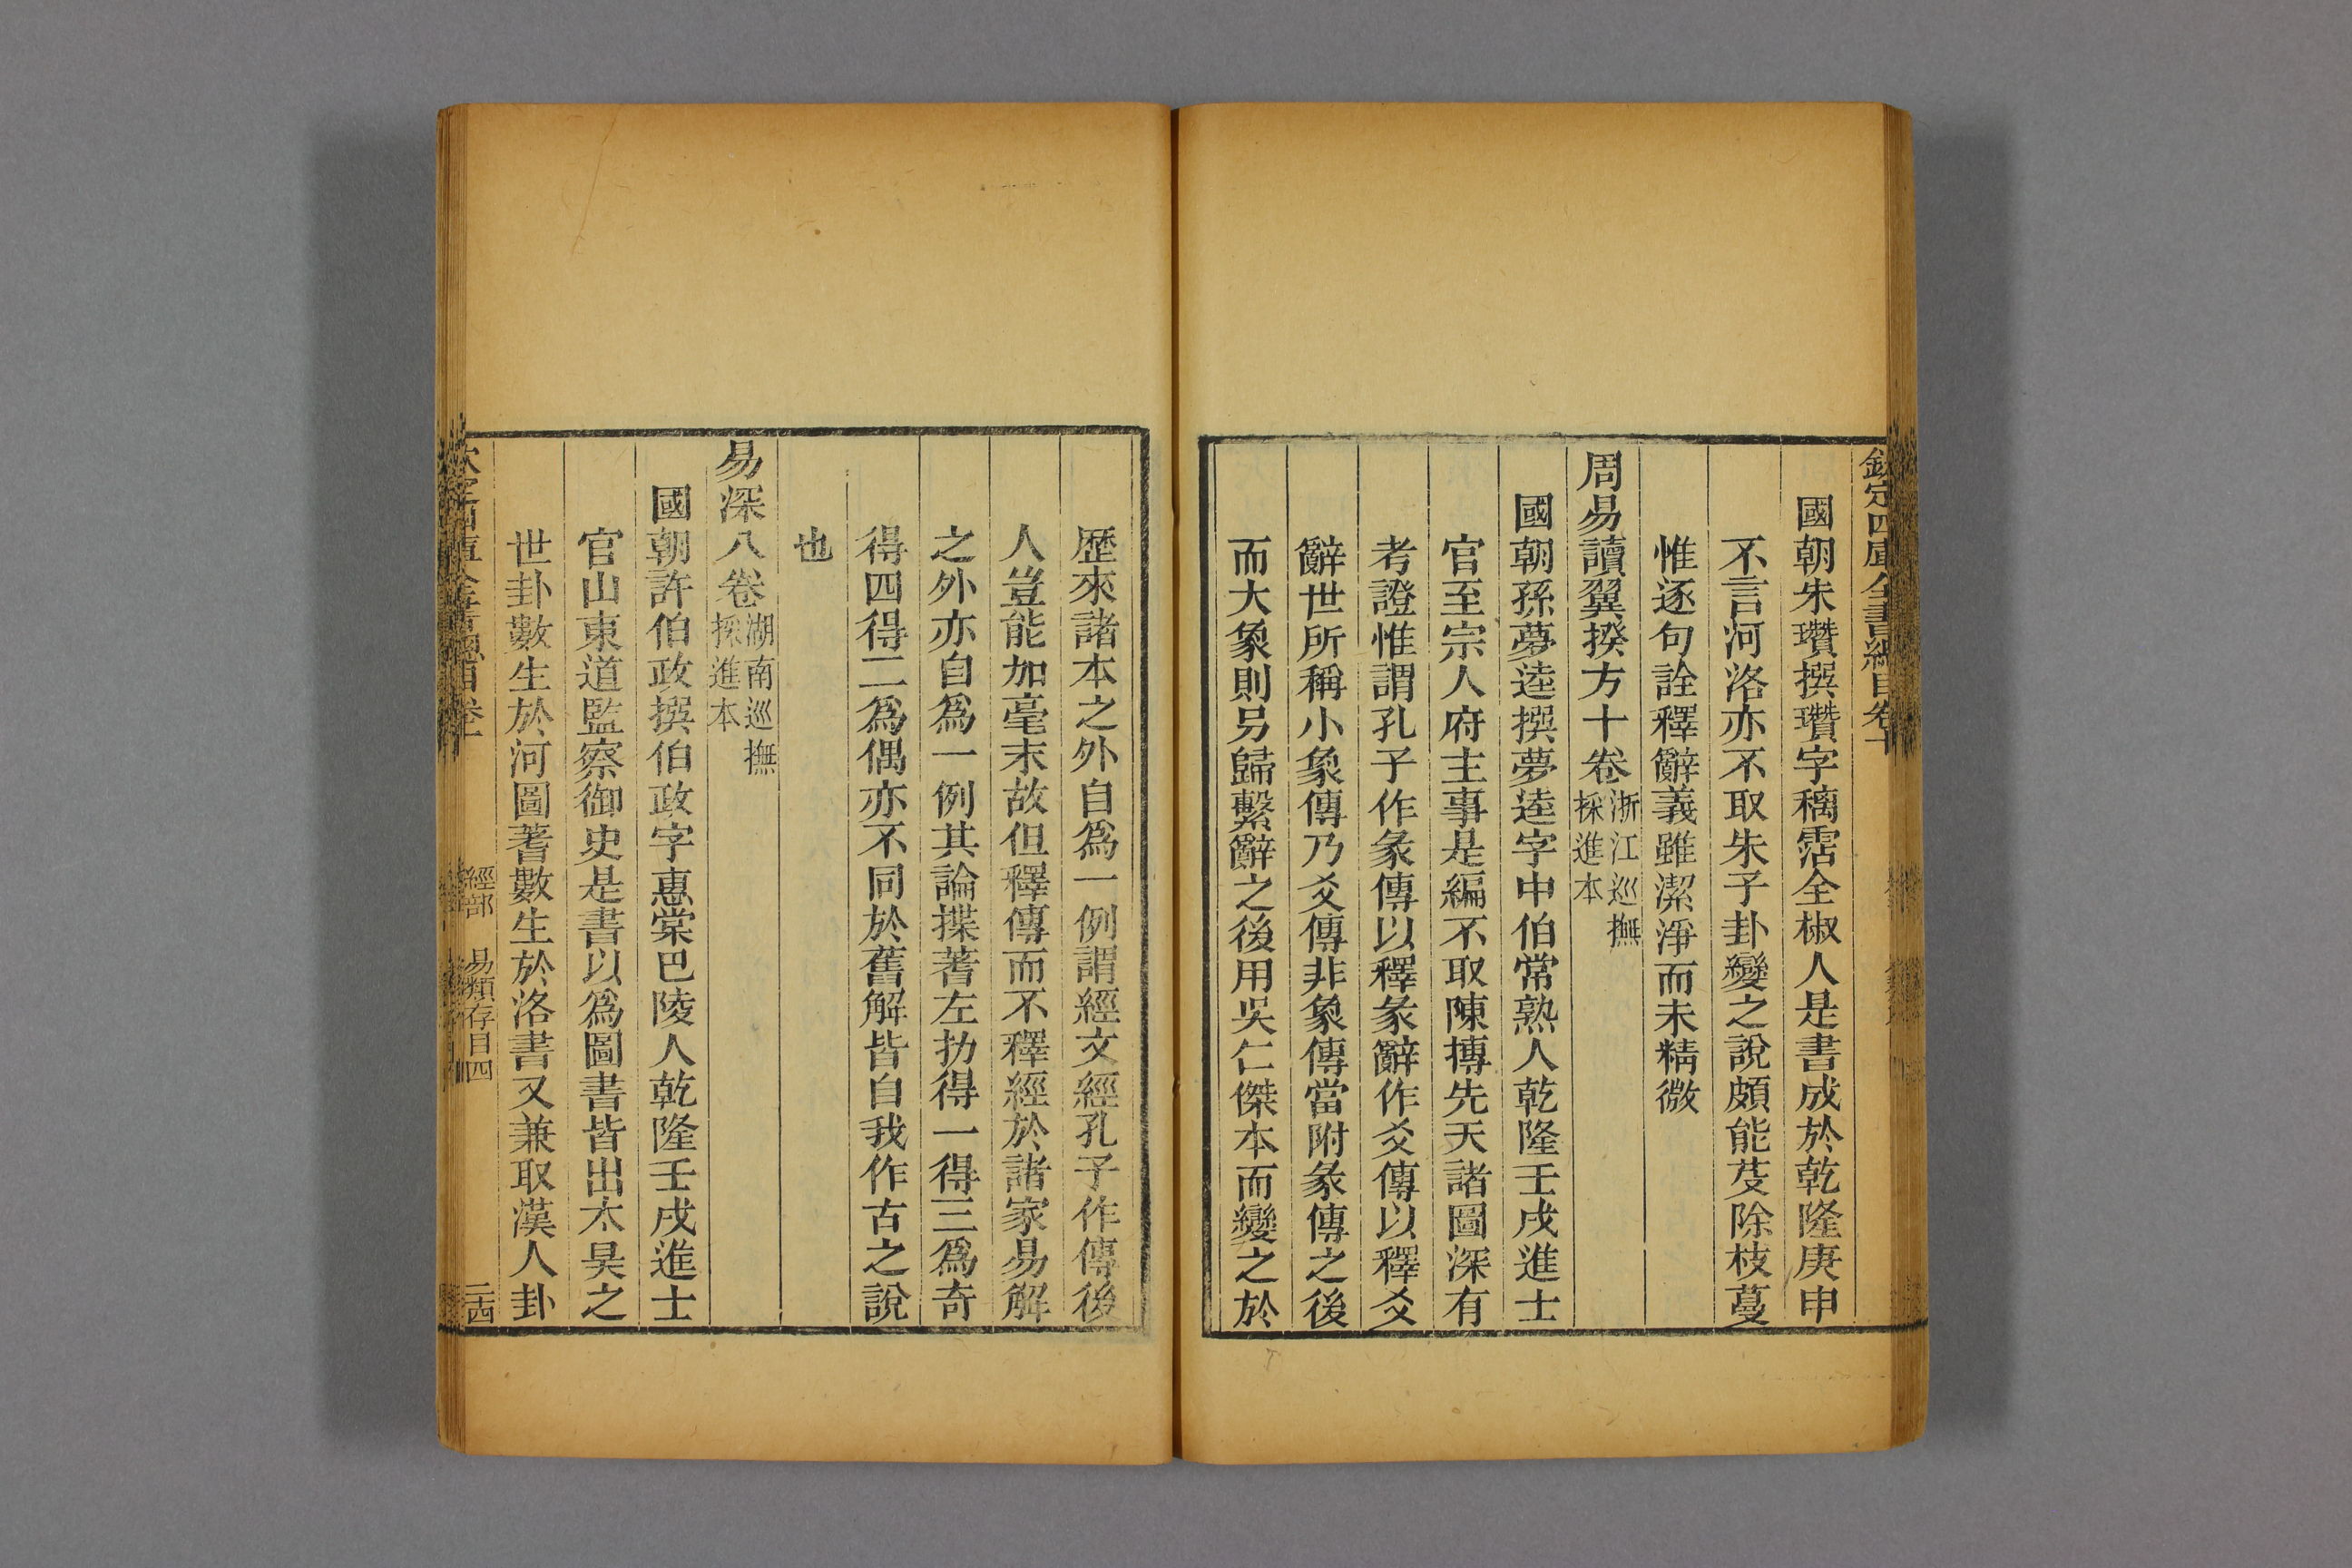 欽定四庫全書總目卷十
國朝朱瓚撰瓚字䅻霑全椒人是書成於乾隆庚申
不言河洛亦不取朱子卦變之說頗能芟除枝蔓
惟逐句詮釋辭義雖潔淨而未精微
周易讀翼揆方十卷浙江巡撫採進本
國朝孫夢逵撰夢逵字中伯常熟人乾隆壬戌進士
官至宗人府主事是編不取陳摶先天諸圖深有
考證惟謂孔子作彖傳以釋彖辭作爻傳以釋爻
辭世所稱小象傳乃爻傳非象傳當附彖傳之後
而大象則另歸繫辭之後用吳仁傑本而變之於
歷來諸本之外自爲一例謂經文經孔子作傳後
人豈能加毫末故但釋傳而不釋經於諸家易解
之外亦自爲一例其論揲蓍左扐得一得三爲奇
得四得二爲偶亦不同於舊解皆自我作古之說
也
易深八卷湖南巡撫採進本
國朝許伯政撰伯政字惠棠巴陵人乾隆壬戌進士
官山東道監察御史是書以爲圖書皆出太昊之
世卦數生於河圖蓍數生於洛書又兼取漢人卦
經部 易類存目四 二十四